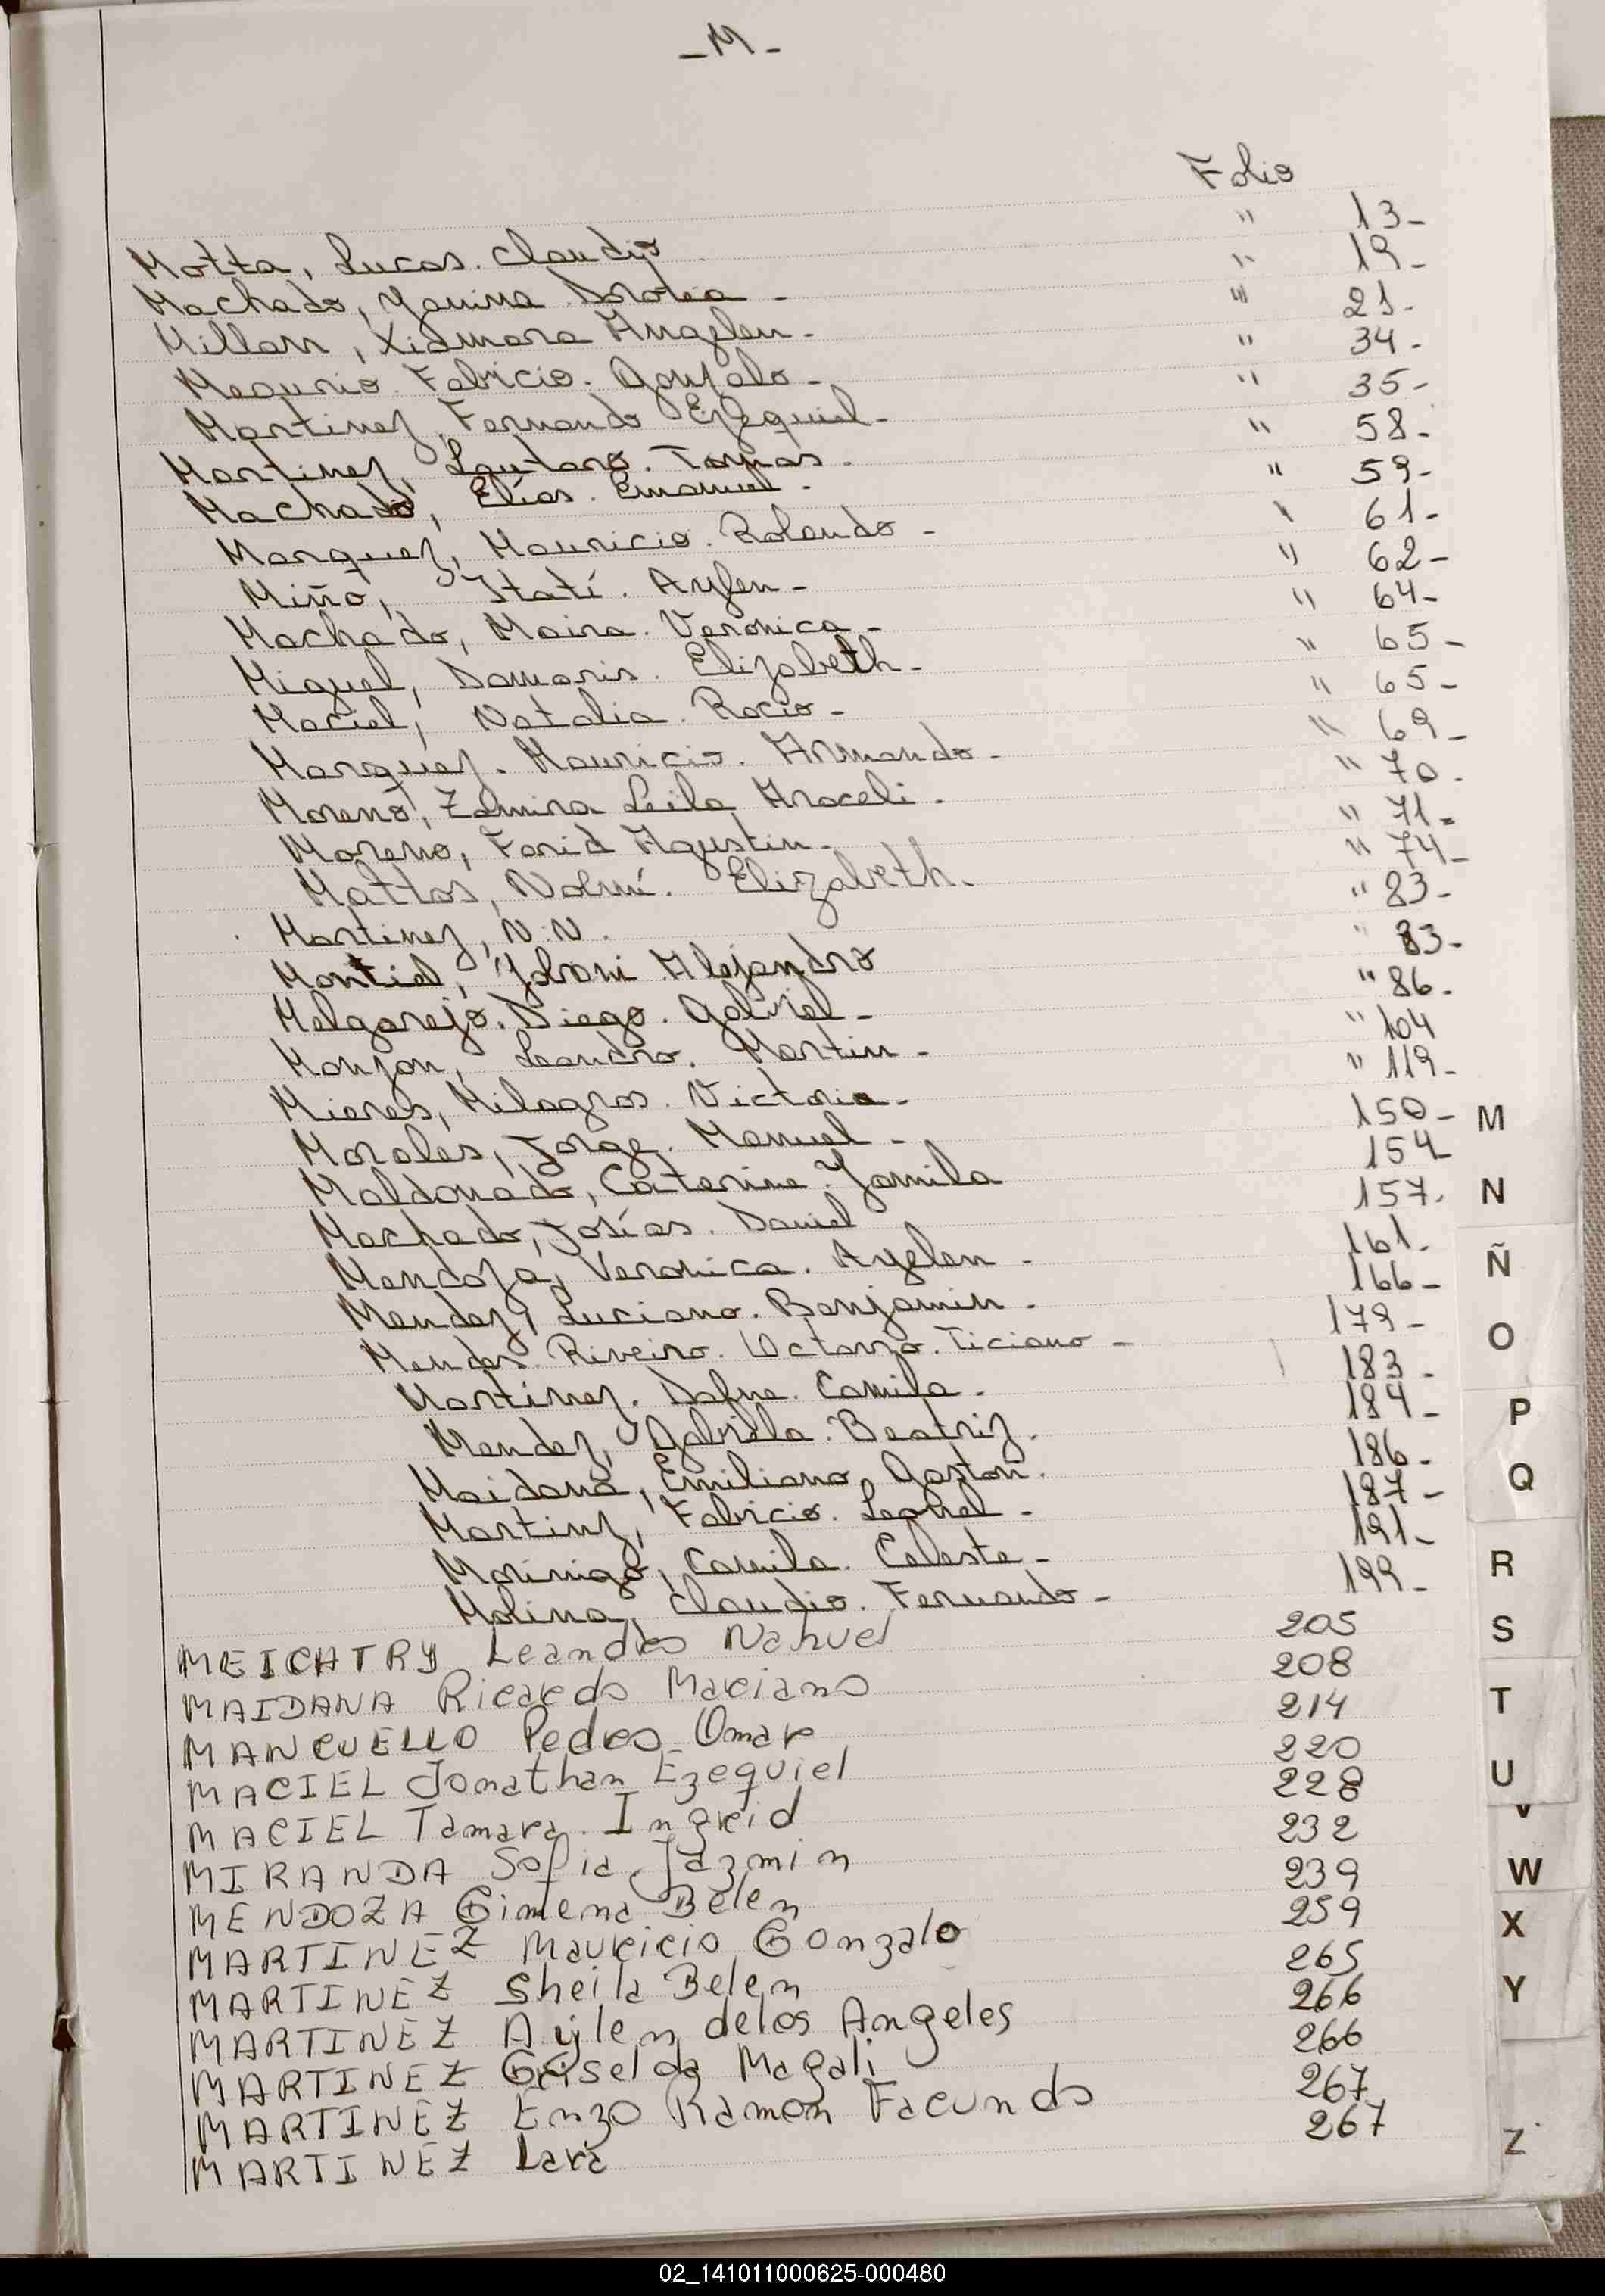 - M -
Folio
Motta, Lucas. Claudio " 13-
Machado, Yanina Dorotea - " 19-
Millan, Xiomara Angelen - " 21-
Fabricio. Gonzalo - " 34-
Martinez, Fernando Ezequiel - " 35-
Martinez, Lautaro. Tomas - " 58-
Machado, Elías. Emanuel - " 59-
Marquez, Mauricio. Rolando - " 61-
Miño, Itatí. Aylen - " 62-
Machado, Maira. Veronica - " 64-
Miguel, Damaris. Elizabeth - " 65-
Maciel, Natalia. Rocio - " 65-
Marquez. Mauricio. Armando - " 69-
Moreno, Zamira Leila Araceli - " 70-
Moreno, Farid Agustin - " 71-
Mattos, Noemí. Elizabeth - " 74-
Martinez, N.N. " 83-
Montiel, Alejandro " 83-
Melgarejo. Diego. Gabriel - " 86-
Monzon, Leandro. Martin - " 104
Mieres, Milagros. Victoria - " 119-
Morales, Jorge. Manuel - 150-
Maldonado, Caterine Yamila 154-
Machado, Josías. Daniel 157-
Mendoza, Veronica. Ayelen - 161-
Mendez, Luciano. Benjamin - 166-
Mendes Riveiro. Octavio. Ticiano - 179-
Martinez. Dafne. Camila - 183-
Mendez, Gabriela. Beatriz - 184-
Maidana, Emiliano, Gaston - 186-
Martinz, Fabricio. Leonel - 187-
Morinigo, Camila. Celeste - 191-
Molina, Claudio. Fernando - 199-
MEICHTRY Leandro Nahuel 205
MAIDANA Ricardo Mariano 208
MANCUELLO Pedro Omar 214
MACIEL Jonathan Ezequiel 220
MACIEL Tamara Ingrid 228
MIRANDA Sofia Jazmin 232
MENDOZA Gimena Belen 239
MARTINEZ Mauricio Gonzalo 259
MARTINEZ Sheila Belen 265
MARTINEZ Aylen delos Angeles 266
MARTINEZ Griselda Magali 266
MARTINEZ Enzo Ramon Facundo 267
MARTINEZ Lara 267
M
N
Ñ
O
P
Q
R
S
T
U
V
W
X
Y
Z
02_141011000625-000480